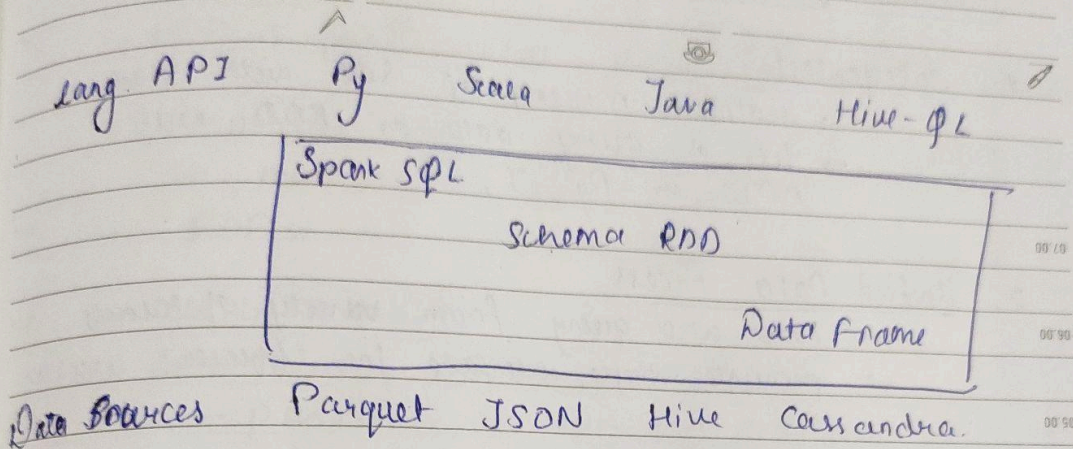 Lang. API Py Scala Java Hive-QL
Spark SQL
Schema RDD
Data Frame
Data Sources Parquet JSON Hive Cassandra.